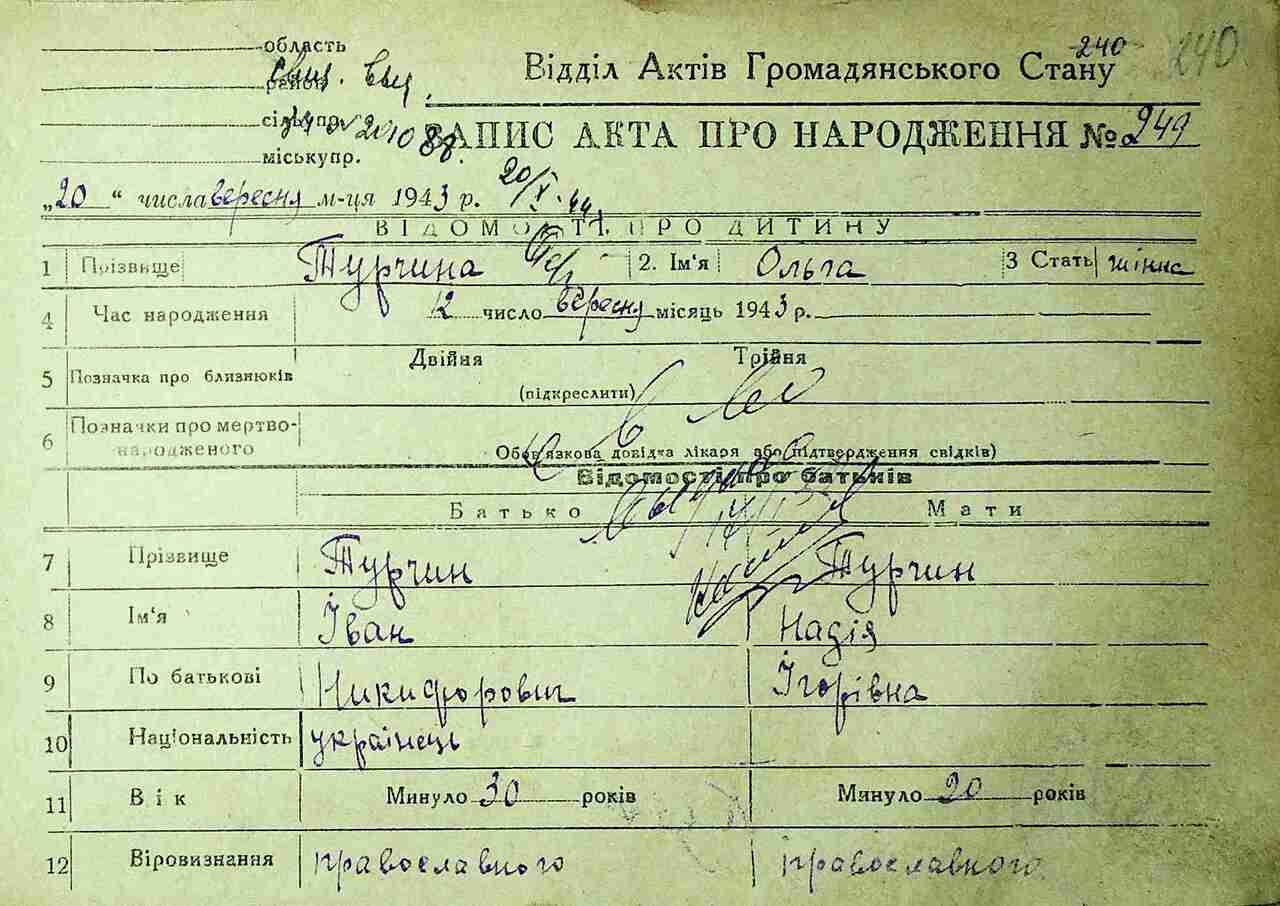 область
район
сільупр.
міськупр.
Відділ Актів Громадянського Стану
240
240
ЗАПИС АКТА ПРО НАРОДЖЕННЯ № 249
„20“ числа вересня м-ця 1943 р.
20/X-44
ВІДОМОСТІ ПРО ДИТИНУ
1 Прізвище Турчина 2. Ім'я Ольга 3 Стать жінка
4 Час народження 12 число вересня місяць 1943 р.
5 Позначка про близнюків Двійня Трійня
(підкреслити)
6 Позначки про мертво-
народженого
Обов'язкова довідка лікаря або підтвердження свідків)
Відомості про батьків
Батько Мати
7 Прізвище Турчин Турчин
8 Ім'я Іван Надія
9 По батькові Никифорович Ігорівна
10 Національність українець
11 Вік Минуло 30 років Минуло 20 років
12 Віровизнання православного православного